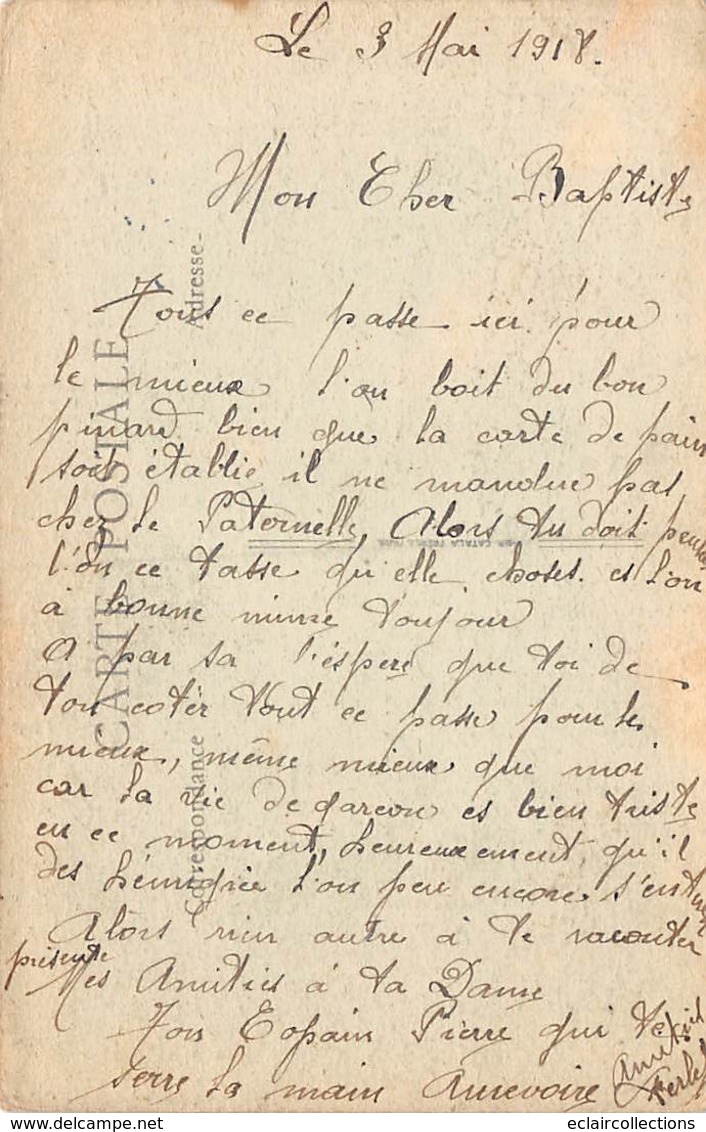 Le 3 Mai 1918.
Mon Cher Baptiste
Tous ce passe ici pour
le mieux l'on boit du bon
pinard bien que la carte de pain
soit établie il ne manque pas
chez le Paternelle, Alors tu doit penser
l'on ce tasse qu'elle choses. es l'on
à bonne mine toujour
A par sa l'éspere que toi de
ton cotér tout ce passe pour le
mieux, même mieux que moi
car la vie de garcon es bien triste
en ce moment, heureuxement qu'il
des l'on peu encore s'en
Alors rien autre à te raconter
présente
Mes Amitiés à ta Dame
Ton Copain Pierre qui te
serre la main Aurevoire
Amitiés
CARTE POSTALE
Correspondance
Adresse
eclaircollections